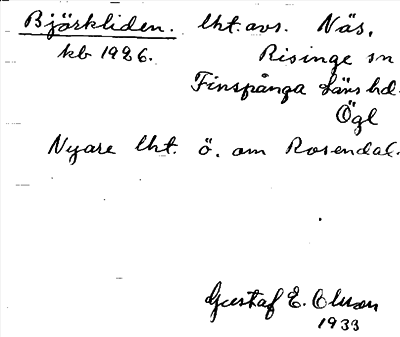 Björkliden. lht. avs. Näs,
kb 1926. Risinge sn
Finspånga läns hd.
Ögl
Nyare lht. ö. om Rosendal.
Gustaf E. Olsson
1933